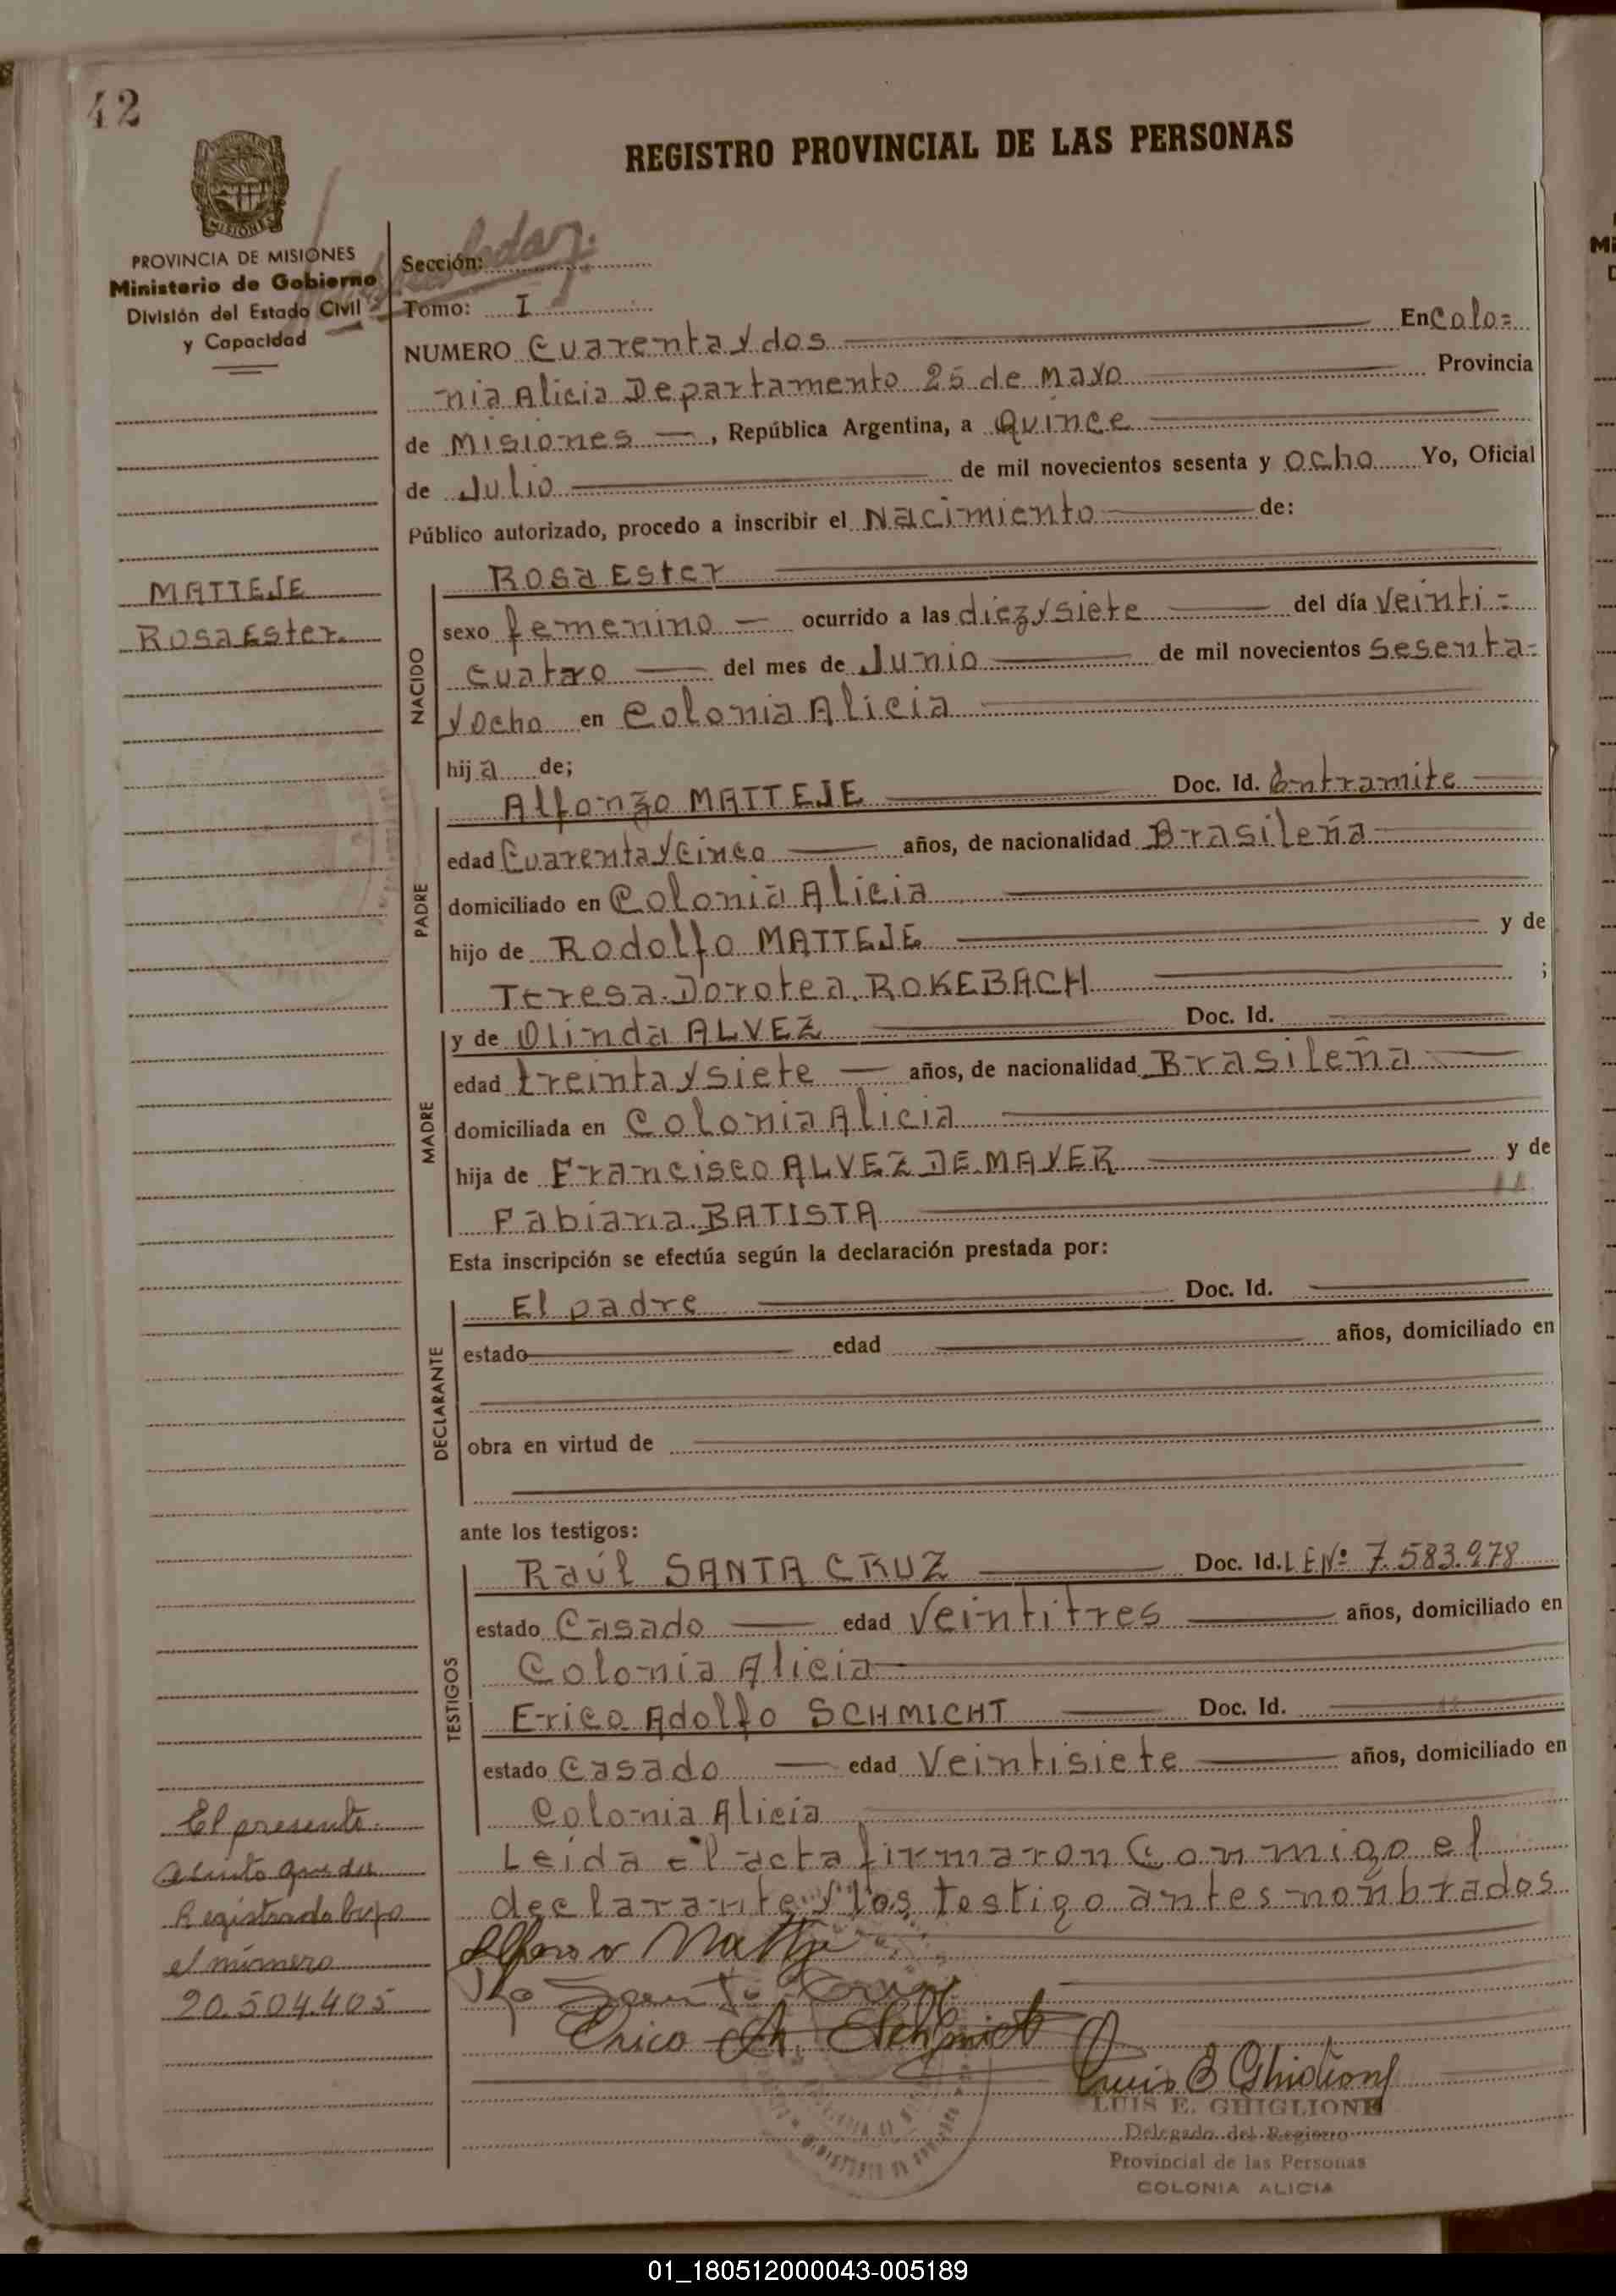 42
REGISTRO PROVINCIAL DE LAS PERSONAS
MISIONES
PROVINCIA DE MISIONES
Ministerio de Gobierno
División del Estado Civil
y Capacidad
MATTEJE
Rosa Ester.
El presente
asiento queda
Registrado bajo
el número
20.504.405
Sección:
Tomo: I
NUMERO Cuarenta y dos En Colo=
nia Alicia Departamento 25 de Mayo Provincia
de Misiones, República Argentina, a Quince
de Julio de mil novecientos sesenta y ocho Yo, Oficial
Público autorizado, procedo a inscribir el Nacimiento de:
NACIDO
Rosa Ester
sexo femenino ocurrido a las diez y siete del día Veinti=
cuatro del mes de Junio de mil novecientos sesenta=
y ocho en Colonia Alicia
hija de;
PADRE
Alfonzo MATTEJE Doc. Id. Entramite
edad Cuarenta y Cinco años, de nacionalidad Brasileña
domiciliado en Colonia Alicia
hijo de Rodolfo MATTEJE y de
Teresa Dorotea ROKEBACH ;
MADRE
y de Olinda ALVEZ Doc. Id.
edad treinta y siete años, de nacionalidad Brasileña
domiciliada en Colonia Alicia
hija de Francisco ALVEZ DE MAYER y de
Fabiana BATISTA
Esta inscripción se efectúa según la declaración prestada por:
DECLARANTE
El padre Doc. Id.
estado edad años, domiciliado en
obra en virtud de
ante los testigos:
TESTIGOS
Raúl SANTA CRUZ Doc. Id. L E Nº 7.583.978
estado Casado edad Veintitres años, domiciliado en
Colonia Alicia
Erico Adolfo SCHMICHT Doc. Id.
estado Casado edad Veintisiete años, domiciliado en
Colonia Alicia
Leida el acta firmaron Con migo el
declarante y los testigo antes nombrados
Alfonso Mattje
Erico A. Schmict
Luis E Ghiglione
LUIS E. GHIGLIONE
Delegado del Registro
Provincial de las Personas
COLONIA ALICIA
01_180512000043-005189